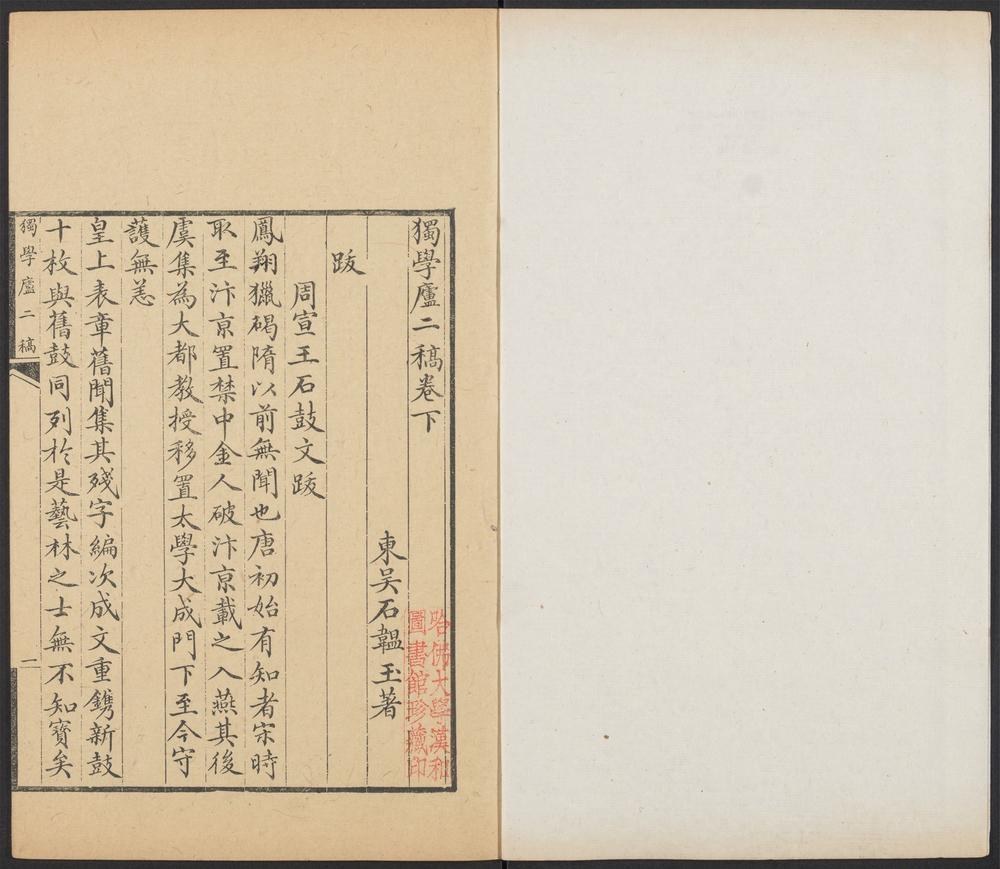 獨學廬二稿卷下
東吳石韞玉著
跋
周宣王石鼓文跋
鳳翔獵碣隋以前無聞也唐初始有知者宋時
取至汴京置禁中金人破汴京載之入燕其後
虞集為大都教授移置太學大成門下至今守
護無恙
皇上表章舊聞集其殘字編次成文重鐫新鼓
十枚與舊鼓同列於是藝林之士無不知寶矣
獨學廬二稿
一
哈佛大學漢和
圖書館珍藏印